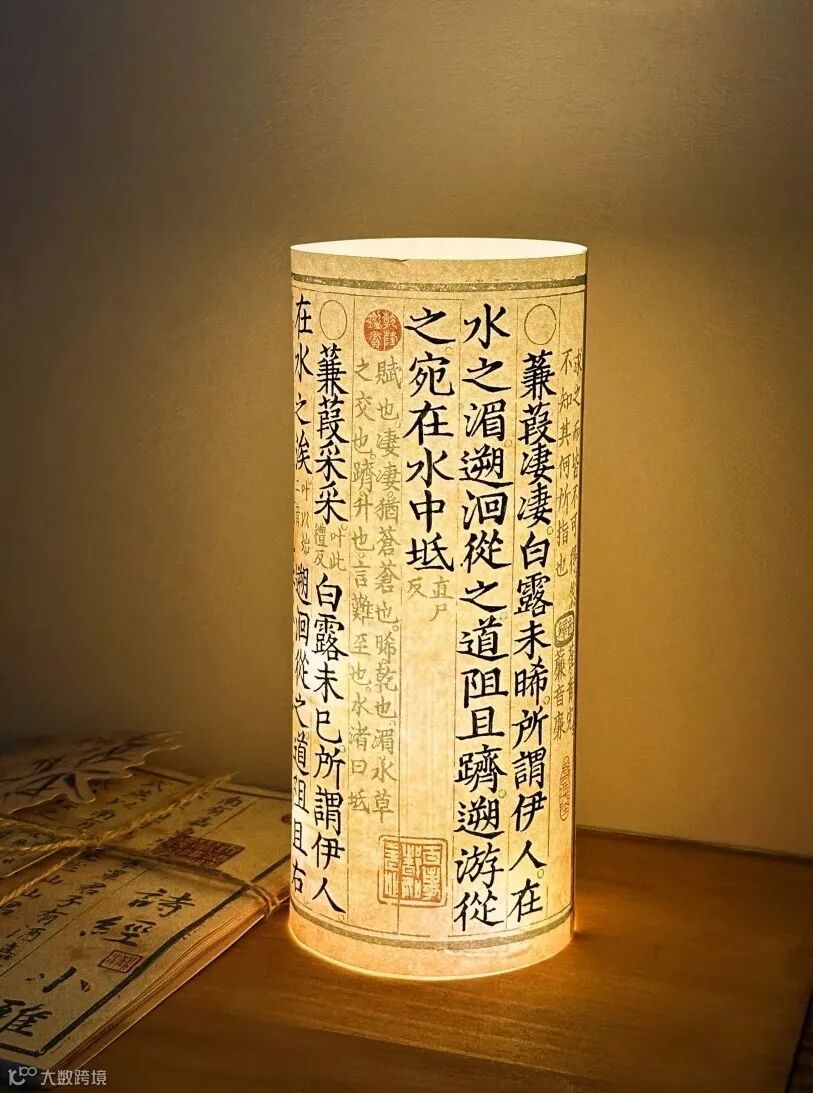 求之而皆不可得
不知其何所指也
蒹音廉
蒹葭凄凄白露未晞所謂伊人在
水之湄遡洄從之道阻且躋遡游從
之宛在水中坻直尸反
賦也凄凄猶蒼蒼也晞乾也湄水草
之交也躋升也言難至也水渚曰坻
蒹葭采采叶此禮反白露未已所謂伊人
在水之涘叶以始遡洄從之道阻且右
詩經
小雅
君子有酒嘉
大数跨境